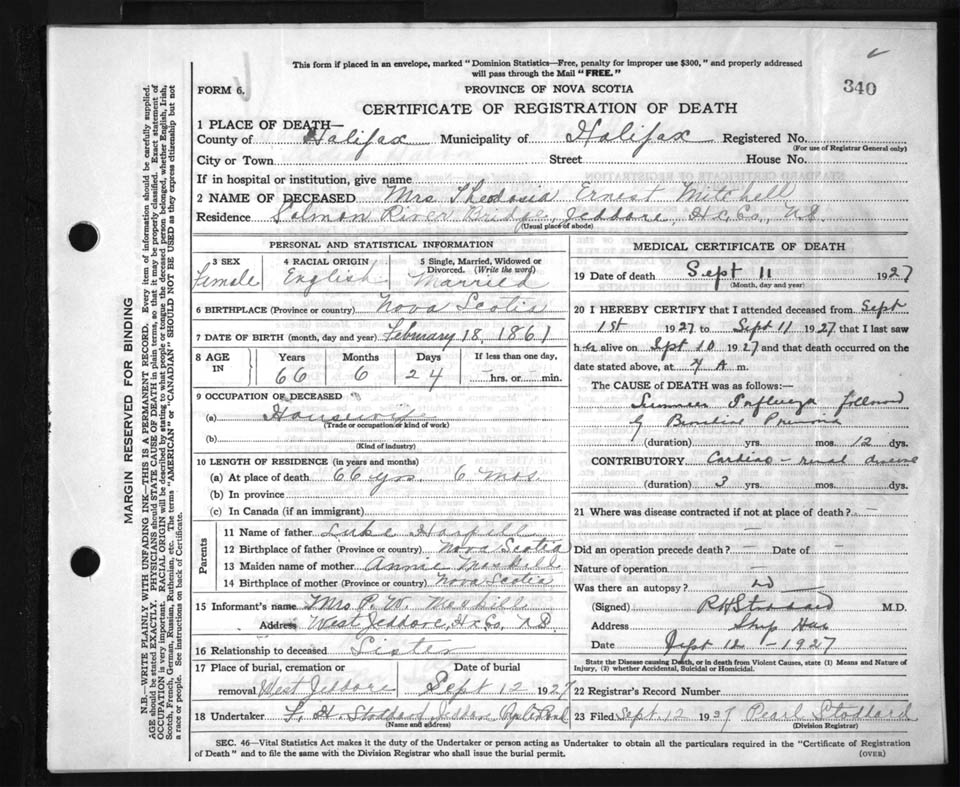 This form if placed in an envelope, marked "Dominion Statistics—Free, penalty for improper use $300," and properly addressed
will pass through the Mail "FREE."
340
FORM 6.
PROVINCE OF NOVA SCOTIA
CERTIFICATE OF REGISTRATION OF DEATH
1 PLACE OF DEATH—
County of Halifax Municipality of Halifax Registered No.
(For use of Registrar General only)
City or Town Street House No.
If in hospital or institution, give name
2 NAME OF DECEASED Mrs Thedosia Ernest Mitchell
Residence Salmon River Bridge, Jeddore, Hx. Co., N.S.
(Usual place of abode)
PERSONAL AND STATISTICAL INFORMATION
3 SEX 4 RACIAL ORIGIN 5 Single, Married, Widowed or
Divorced. (Write the word)
Female English Married
6 BIRTHPLACE (Province or country) Nova Scotia
7 DATE OF BIRTH (month, day and year) February 18, 1861
8 AGE IN Years Months Days If less than one day,
66 6 24 —hrs. or—min.
9 OCCUPATION OF DECEASED
(a) Housewife
(Trade or occupation or kind of work)
(b)
(Kind of industry)
10 LENGTH OF RESIDENCE (in years and months)
(a) At place of death 66 yrs. 6 mos.
(b) In province
(c) In Canada (if an immigrant)
Parents
11 Name of father Luke Harpell
12 Birthplace of father (Province or country) Nova Scotia
13 Maiden name of mother Annie Maskill
14 Birthplace of mother (Province or country) Nova Scotia
15 Informant's name Mrs P. W. Maskill
Address West Jeddore, Hx Co., N.S.
16 Relationship to deceased Sister
17 Place of burial, cremation or Date of burial
removal West Jeddore Sept 12 1927
18 Undertaker Stoddard Jeddore
(Name and address)
MEDICAL CERTIFICATE OF DEATH
19 Date of death Sept 11 1927
(Month, day and year)
20 I HEREBY CERTIFY that I attended deceased from Sept
1st 1927 to Sept 11 1927 that I last saw
her alive on Sept 10 1927 and that death occurred on the
date stated above, at 4 A m.
The CAUSE OF DEATH was as follows:—
Summer Influenza followed
by
(duration) yrs. mos. 12 dys.
CONTRIBUTORY Cardiac-renal disease
(duration) 3 yrs. mos. dys.
21 Where was disease contracted if not at place of death? —
Did an operation precede death? — Date of —
Nature of operation —
Was there an autopsy? no
(Signed) R H Stoddard M.D.
Address Ship Har
Date Sept 12 - 1927
State the Disease causing Death, or in death from Violent Causes, state (1) Means and Nature of
Injury, (2) whether Accidental, Suicidal or Homicidal.
22 Registrar's Record Number
23 Filed Sept 12 1927 Pearl Stoddard
(Division Registrar)
SEC. 46—Vital Statistics Act makes it the duty of the Undertaker or person acting as Undertaker to obtain all the particulars required in the "Certificate of Registration
of Death" and to file the same with the Division Registrar who shall issue the burial permit.
(OVER)
MARGIN RESERVED FOR BINDING
N.B.—WRITE PLAINLY WITH UNFADING INK—THIS IS A PERMANENT RECORD. Every item of information should be carefully supplied.
AGE should be stated EXACTLY. PHYSICIANS should STATE CAUSE OF DEATH in plain terms, so that it may be properly classified. Exact statement of
OCCUPATION is very important. RACIAL ORIGIN will be described by stating to what people or tongue the deceased person belonged, whether English, Irish,
Scotch, French, German, Russian, Ruthenian, etc. The terms "AMERICAN" or "CANADIAN" SHOULD NOT BE USED as they express citizenship but not
a race or people. See instructions on back of Certificate.